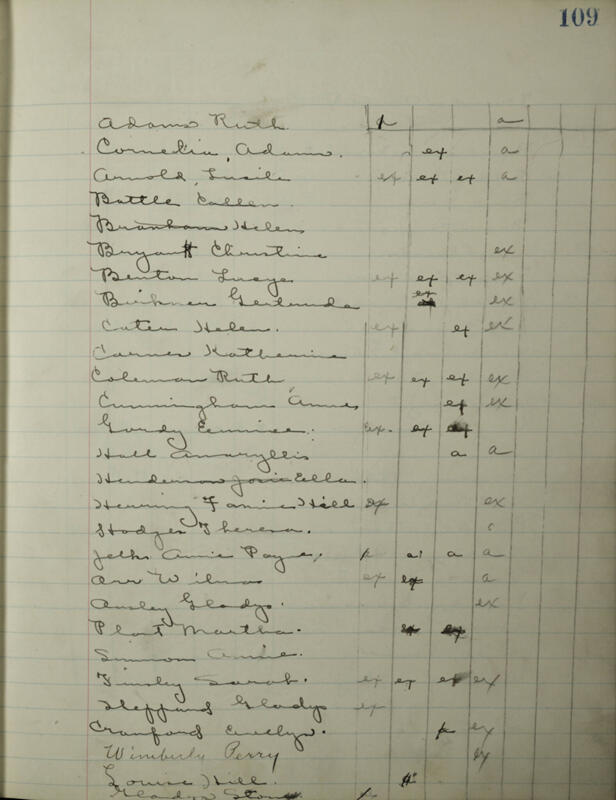 109
Adams Ruth p a
Cornelia, Adams. ex a
Arnold, Lucile ex ex ex a
Battle Callen
Branham Helen
Bryant Christine ex
Benton Lucye ex ex ex ex
Buckner Gertrude ex ex
Cater Helen. ex ex ex
Carnes Katherine
Coleman Ruth ex ex ex ex
Cunningham Annes ex ex
Gordy Eunice. ex. ex
Hall Amaryllis a a
Henderson Josie Ella.
Herring Fannie Hill ex ex
Hodges Theresa. c
Jelks Annie Payne, p a a a
Orr Wilma ex ex a
Ansley Gladys. ex
Plant Martha. ex ex
Simmon Annie.
Tinsley Sarah. ex ex ex ex
Sheppard Gladys ex
Cranford Evelyn. p ex
Wimberly Perry ex
Louise Hill.
Gladys Stone